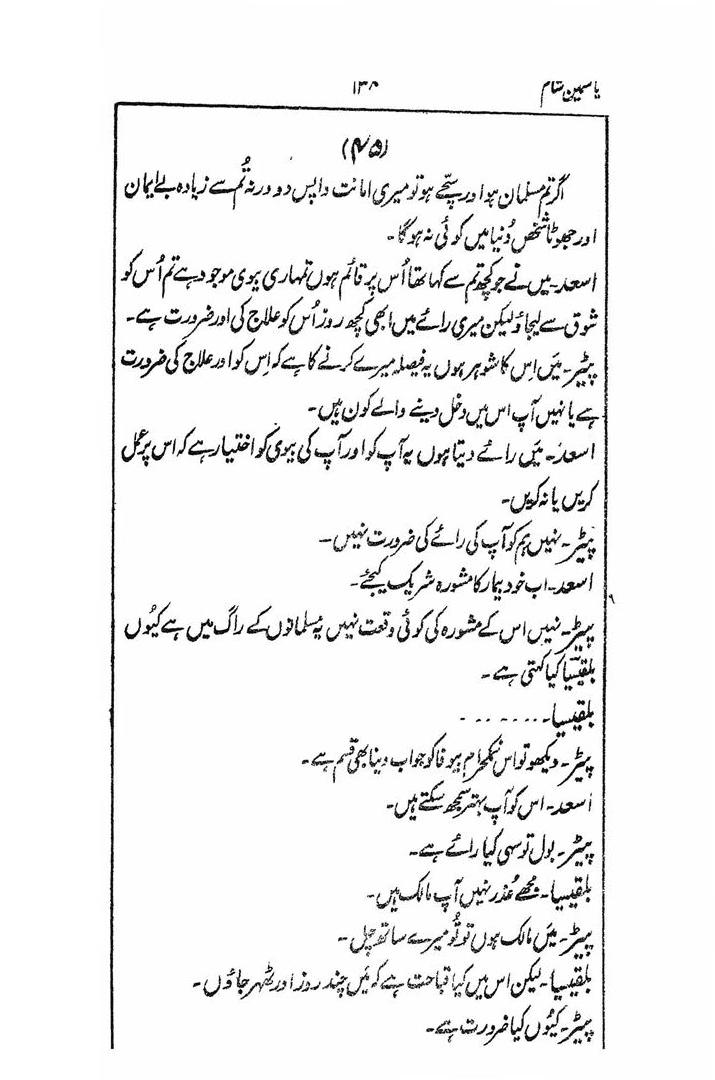 یاسمین شام ۱۳۸
(۴۵)
اگر تم مسلمان ہو اور سچے ہو تو میری امانت واپس دو ورنہ تُم سے زیادہ بے ایمان
اور جھوٹا شخص دُنیا میں کوئی نہ ہوگا۔
اسعد۔ میں نے جو کچھ تم سے کہا تھا اُس پر قائم ہوں تمہاری بیوی موجود ہے تم اُس کو
شوق سے لیجاؤ لیکن میری رائے میں ابھی کچھ روز اُس کو علاج کی اور ضرورت ہے۔
پیٹر۔ میَں اِس کا شوہر ہوں یہ فیصلہ میرے کرنے کا ہے کہ اِس کو اور علاج کی ضرورت
ہے یا نہیں آپ اس میں دخل دینے والے کون ہیں۔
اسعد۔ میَں رائے دیتا ہوں یہ آپ کو اور آپ کی بیوی کو اختیار ہے کہ اس پر عمل
کریں یا نہ کریں۔
پیٹر۔ نہیں ہم کو آپ کی رائے کی ضرورت نہیں۔
اسعد۔ اب خود بیمار کا مشورہ شریک کیجئے۔
پیٹر۔ نہیں اس کے مشورہ کی کوئی وقعت نہیں یہ مسلمانوں کے راگ میں ہے کیُوں
بلقیسیا کیا کہتی ہے۔
بلقیسیا۔ . . . . . . .
پیٹر۔ دیکھو تو اس نمکحرام بیوفا کو جواب دینا بھی قسم ہے۔
اسعد۔ اس کو آپ بہتر سمجھ سکتے ہیں۔
پیٹر۔ بول تو سہی کیا رائے ہے۔
بلقیسیا۔ مجھے عُذر نہیں آپ مالک ہیں۔
پیٹر۔ میَں مالک ہوں تو تُو میرے ساتھ چل۔
بلقیسیا۔ لیکن اس میں کیا قباحت ہے کہ میَں چند روز اور ٹھہر جاؤں۔
پیٹر۔ کیُوں کیا ضرورت ہے۔